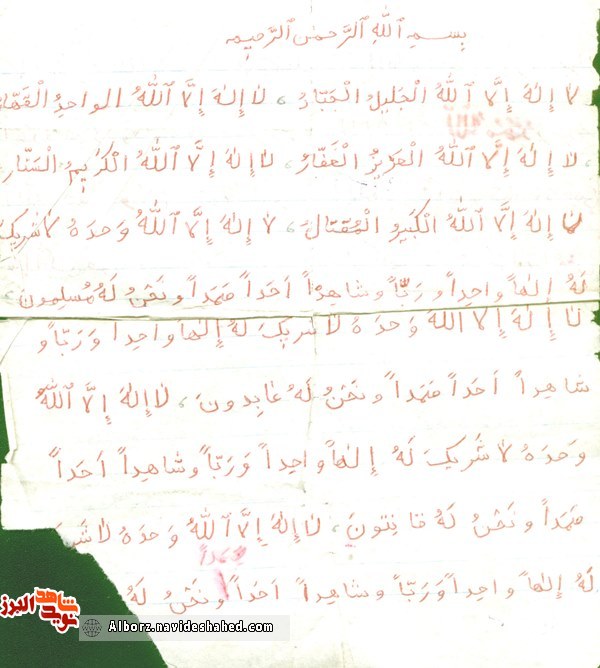 بِسمِ ٱللّٰهِ ٱلرَّحمٰنِ ٱلرَّحیمِ
لا إِلٰهَ إِلَّا ٱللّٰهُ الْجَلیلُ الْجَبّارُ، لا إِلٰهَ إِلَّا ٱللّٰهُ الواحِدُ الْقَهّار
، لا إِلٰهَ إِلَّا ٱللّٰهُ الْعَزیزُ الْغَفّارُ، لا إِلٰهَ إِلَّا ٱللّٰهُ الْکَریمُ الْسَتّار
لا إِلٰهَ إِلَّا ٱللّٰهُ الْکَبیرُ الْمُتَعالِ، لا إِلٰهَ إِلَّا ٱللّٰهُ وَحدَهُ لا شَریکَ
لَهُ إِلٰهاً واحِداً وَ رَبّاً وَ شاهِداً اَحَداً صَمَداً وَ نَحْنُ لَهُ مُسلِمونَ،
لا إِلٰهَ إِلَّا ٱللّٰهُ وَحدَهُ لا شَریکَ لَهُ إِلٰهاً واحِداً وَ رَبّاً وَ
شاهِداً اَحَداً صَمَداً وَ نَحْنُ لَهُ عابِدونَ، لا إِلٰهَ إِلَّا ٱللّٰهُ
وَحدَهُ لا شَریکَ لَهُ إِلٰهاً واحِداً وَ رَبّاً وَ شاهِداً اَحَداً
صَمَداً وَ نَحْنُ لَهُ قانِتونَ، لا إِلٰهَ إِلَّا ٱللّٰهُ وَحدَهُ لا شَر
صَمَداً
لَهُ إِلٰهاً واحِداً وَ رَبّاً وَ شاهِداً اَحَداً وَ نَحْنُ لَهُ
نوید شاهد البرز
Alborz.navideshahed.com